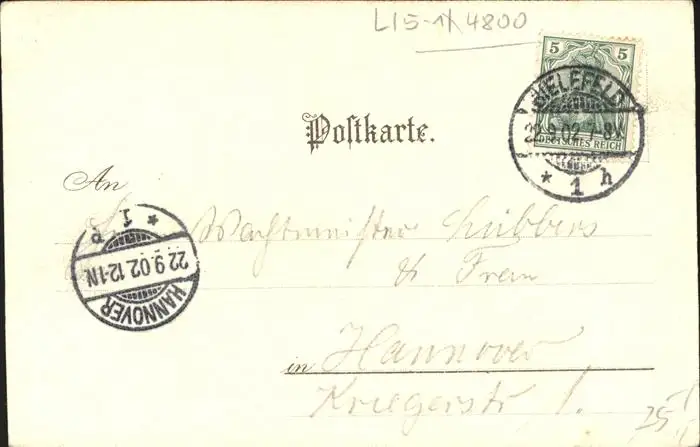 L15-1 4800
5 5
DEUTSCHES REICH
BIELEFELD
22.9.02.7-8V.
* 1 h
Postkarte.
An
Wachtmeister Lübbers
& Frau
in Hannover
Kriegerstr 1.
HANNOVER
22 9.02.12-1N
* 1 p
25